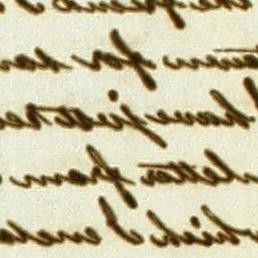 the friend
for
have just re
letter from
which I enclo